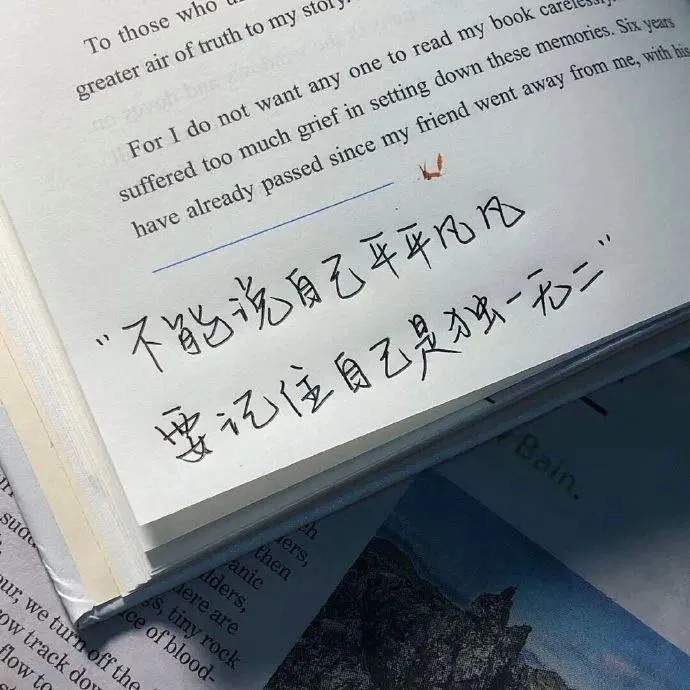 To those who
greater air of truth to my story.
For I do not want any one to read my book carelessly.
suffered too much grief in setting down these memories. Six years
have already passed since my friend went away from me, with his
“不能说自己平平凡凡
要记住自己是独一无二”
Bain.
then
anic
ders,
ere are
tiny rock
ce of blood-
our, we turn off the
row track down
flow to